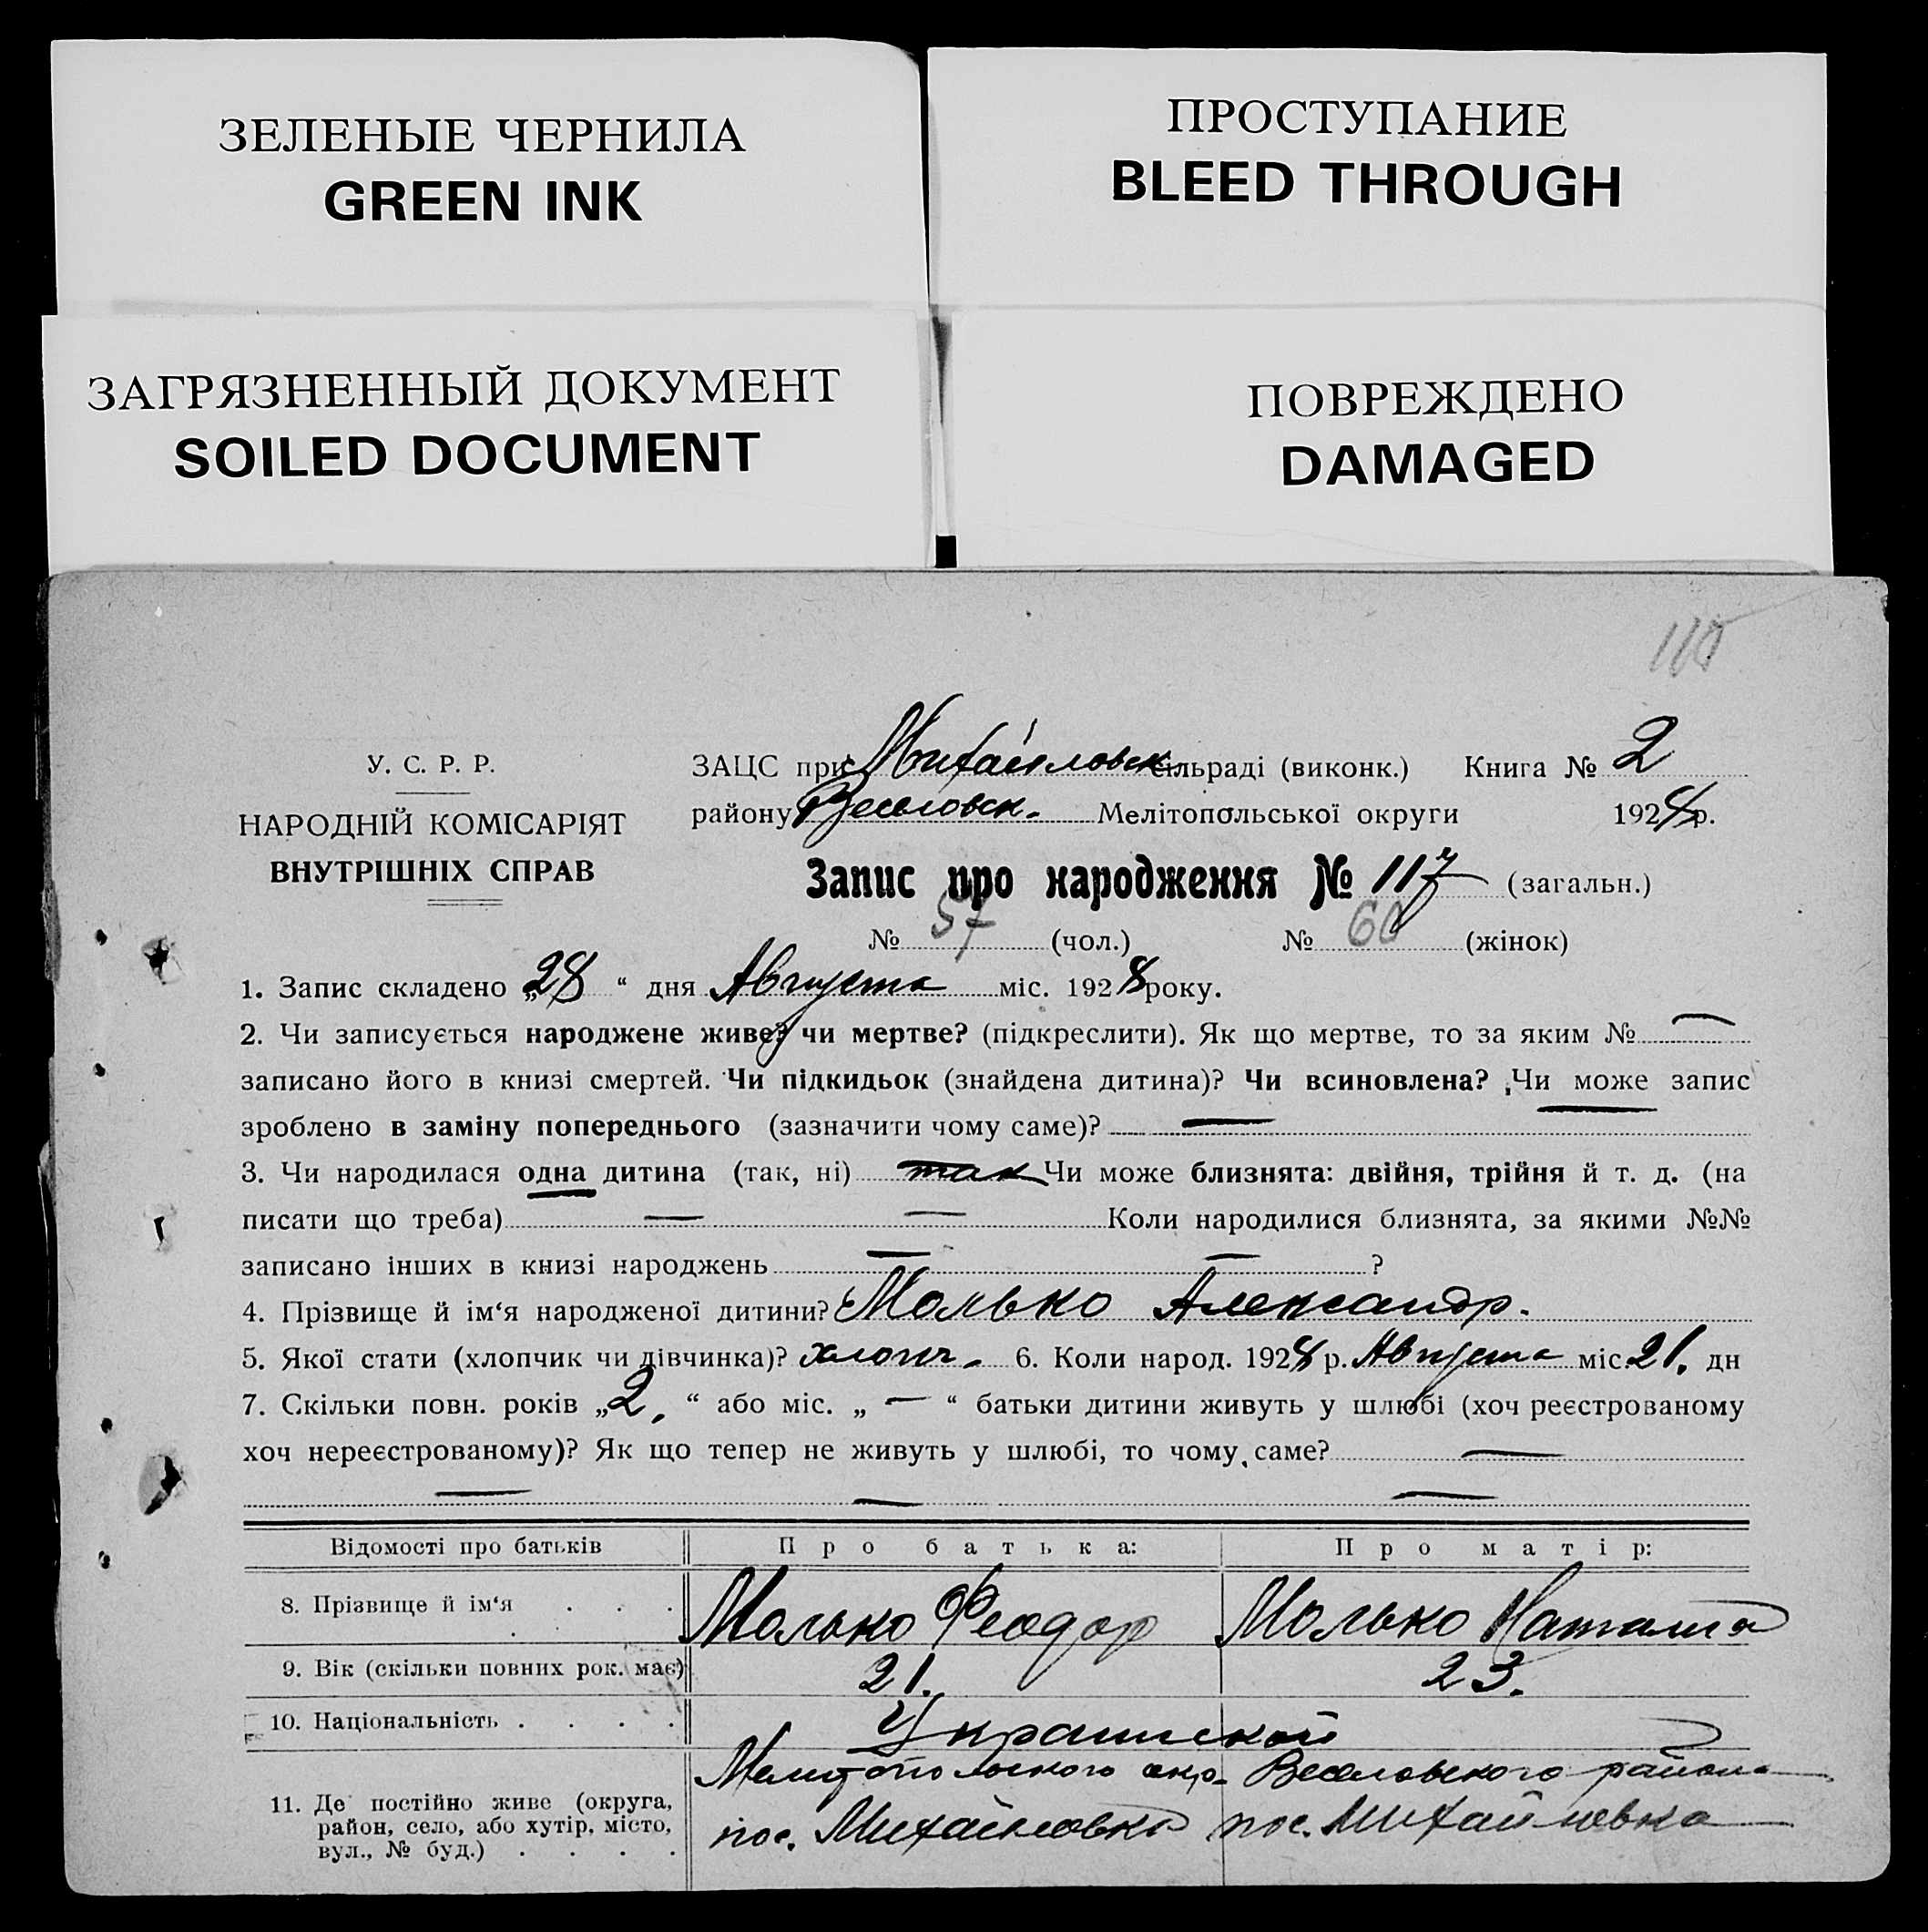 ЗЕЛЕНЫЕ ЧЕРНИЛА
GREEN INK
ПРОСТУПАНИЕ
BLEED THROUGH
ЗАГРЯЗНЕННЫЙ ДОКУМЕНТ
SOILED DOCUMENT
ПОВРЕЖДЕНО
DAMAGED
У. С. Р. Р.
НАРОДНІЙ КОМІСАРІЯТ
ВНУТРІШНІХ СПРАВ
ЗАЦС при Михайловск. сільраді (виконк.) Книга № 2
району Веселовск. Мелітопольської округи 1928 р.
Запис про народження № 117 (загальн.)
№ 57 (чол.) № 60 (жінок)
1. Запис складено „28“ дня Августа міс. 1928 року.
2. Чи записується народжене живе? чи мертве? (підкреслити). Як що мертве, то за яким № —
записано його в книзі смертей. Чи підкидьок (знайдена дитина)? Чи всиновлена? Чи може запис
зроблено в заміну попереднього (зазначити чому саме)? —
3. Чи народилася одна дитина (так, ні) так Чи може близнята: двійня, трійня й т. д. (на
писати що треба) — — Коли народилися близнята, за якими №№
записано інших в книзі народжень — — ?
4. Прізвище й ім‘я народженої дитини? Молько Александр.
5. Якої стати (хлопчик чи дівчинка)? хлопч. 6. Коли народ. 1928 р. Августа міс. 21. дн
7. Скільки повн. років „2.“ або міс. „—“ батьки дитини живуть у шлюбі (хоч реєстрованому
хоч нереєстрованому)? Як що тепер не живуть у шлюбі, то чому саме? —
— — —
Відомості про батьків Про батька: Про матір:
8. Прізвище й ім‘я . . . Молько Феодор Молько Наталия
9. Вік (скільки повних рок. має) 21. 23.
10. Національність . . . . Украинской
11. Де постійно живе (округа,
район, село, або хутір, місто,
вул., № буд.) . . . .
Мелитопольского окр. Веселовского района
пос. Михайловка пос. Михайловка